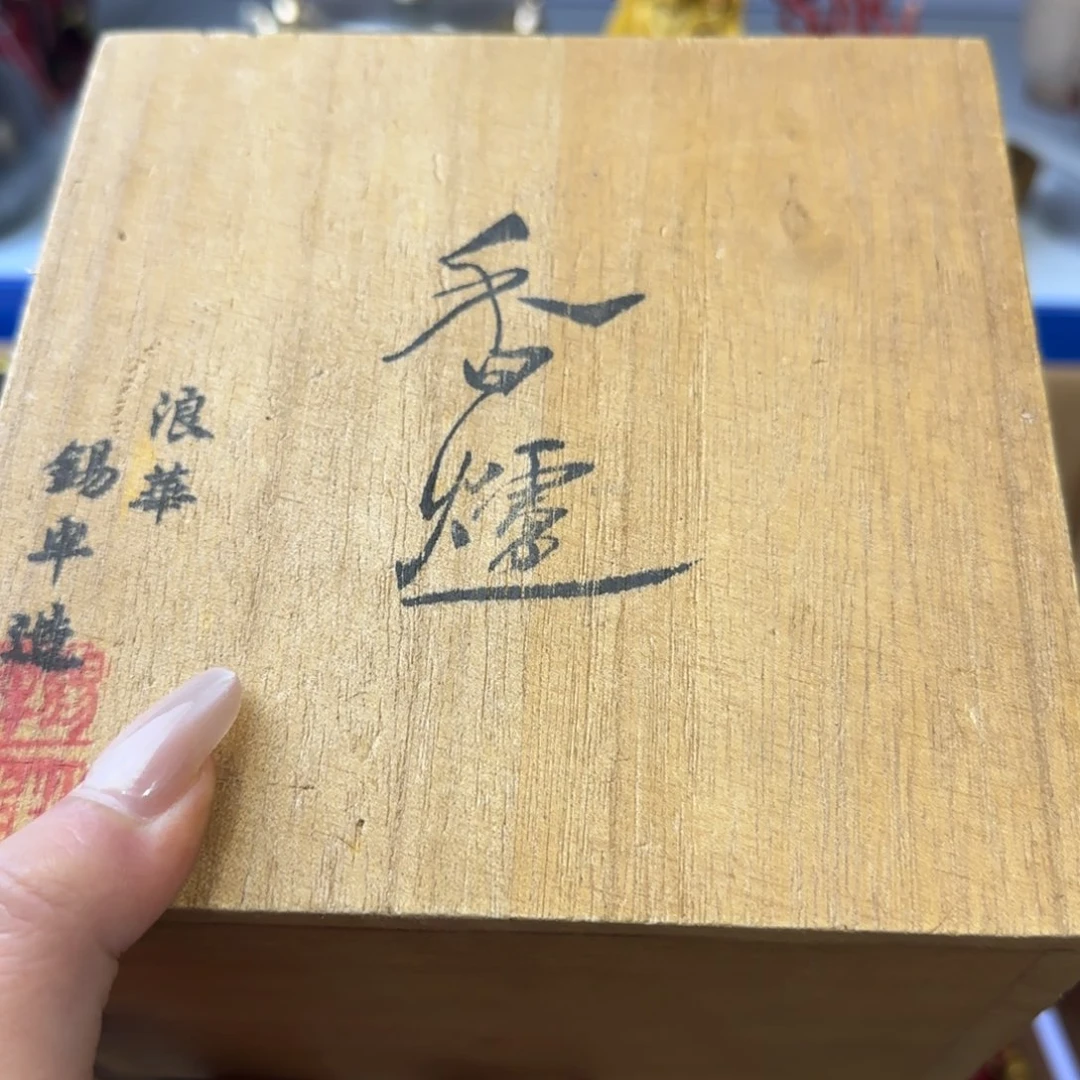 香爐
浪華
錫車造